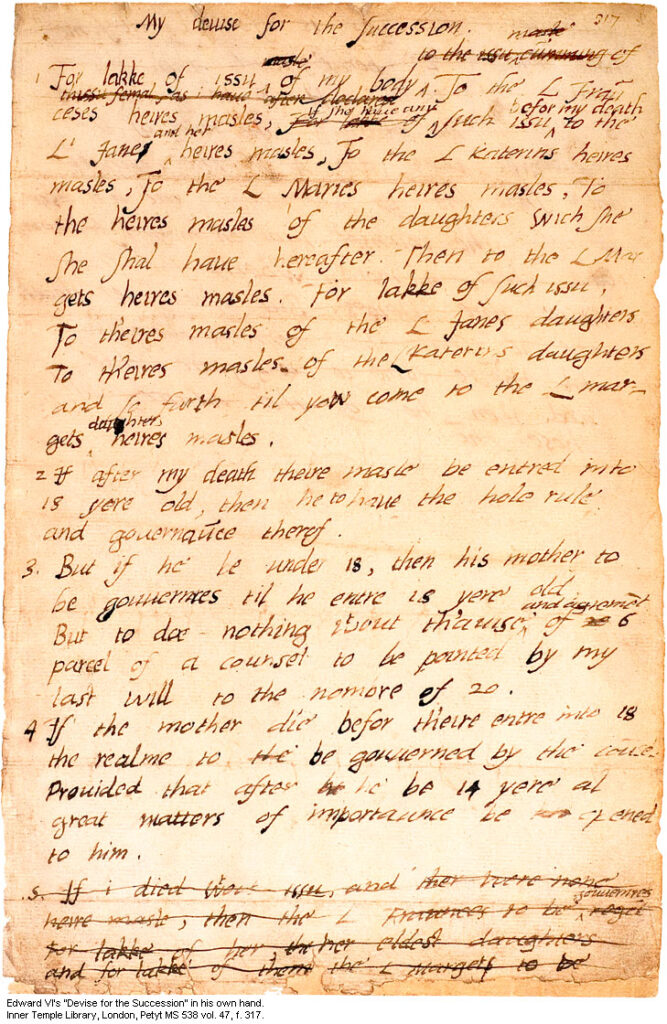 My deuise for the Succession.
317
masle
1 For lakke of issu masle of my body
to the issu cumming of
thissu femal, as i haue after declared
To the L Frau
ceses heires masles, if she haue any
For lakke of such issu befor my death to the
L' Janes and her heires masles, To the L Katerins heires
masles, To the L Maries heires masles, To
the heires masles of the daughters wich she
she shal haue hereafter. Then to the L Mar
gets heires masles. For lakke of such issu,
To theires masles of the L Janes daughters
To theires masles of the L Katerins daughters
and so furth til yow come to the L mar-
gets daughters heires masles.
2 If after my death theire masle be entred into
18 yere old, then he to haue the hole rule
and gouernaūce therof.
3. But if he be under 18, then his mother to
be gouuernres til he entre 18 yere old
But to doe nothing wout thauise and agremēt of 6
parcel of a counsel to be pointed by my
last will to the nombre of 20.
4 If the mother die befor theire entre into 18
the realme to be gouuerned by the coūcel
Prouided that after he be 14 yere al
great matters of importaunce be opened
to him.
5. If i died wout issu, and ther were none
heire masle, then the L Fraunces to be gouuernres reget
For lakke of her the her eldest daughters
and for lakke of them the L Margets to be
Edward VI's "Devise for the Succession" in his own hand.
Inner Temple Library, London, Petyt MS 538 vol. 47, f. 317.